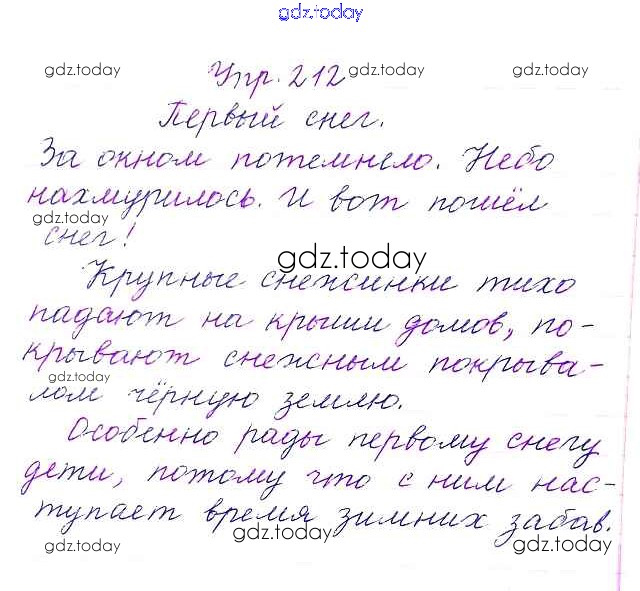 gdz.today
gdz.today gdz.today gdz.today
Упр. 212
Первый снег.
За окном потемнело. Небо
нахмурилось. И вот пошёл
gdz.today
снег!
gdz.today
Крупные снежинки тихо
падают на крыши домов, по-
крывают снежным покрыва-
gdz.today
лом чёрную землю.
Особенно рады первому снегу
дети, потому что с ним нас-
тупает время зимних забав.
gdz.today gdz.today gdz.today